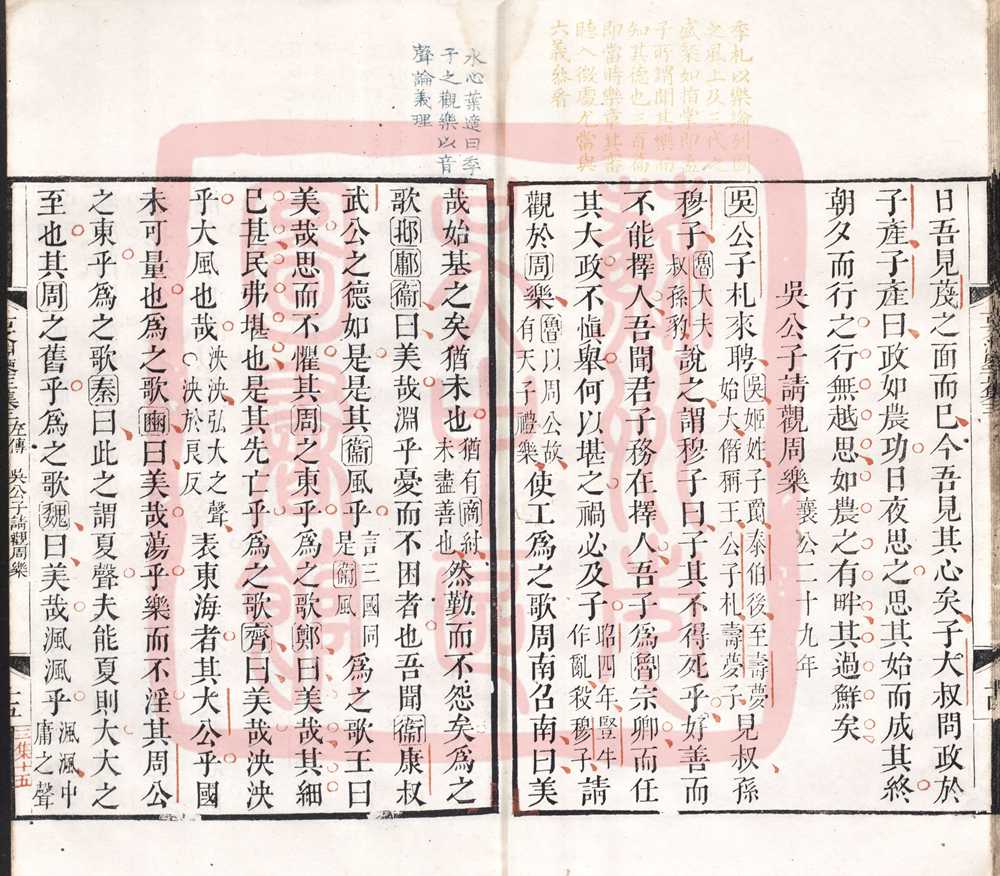 季札以樂論列國
之風上及三代之
盛衰如指掌即孟
子所謂聞其樂而
知其德也三百篇
即當時樂章其審
聽入微處尤當與
六義參看
日吾見蔑之面而已今吾見其心矣子大叔問政於
子產子產曰政如農功日夜思之思其始而成其終
朝夕而行之行無越思如農之有畔其過鮮矣
吳公子請觀周樂 襄公二十九年
吳公子札來聘 吳姬姓子爵泰伯後至壽夢始大僭稱王公子札壽夢子 見叔孫
穆子 魯大夫叔孫豹 說之謂穆子曰子其不得死乎好善而
不能擇人吾聞君子務在擇人吾子為魯宗卿而任
其大政不慎舉何以堪之禍必及子 昭四年豎牛作亂殺穆子 請
觀於周樂 魯以周公故有天子禮樂 使工為之歌周南召南曰美
水心葉適曰季
子之觀樂以音
聲論義理
哉始基之矣猶未也 猶有商紂未盡善也 然勤而不怨矣為之
歌邶鄘衞曰美哉淵乎憂而不困者也吾聞衞康叔
武公之德如是是其衞風乎 言三國同是衞風 為之歌王曰
美哉思而不懼其周之東乎為之歌鄭曰美哉其細
已甚民弗堪也是其先亡乎為之歌齊曰美哉泱泱
乎大風也哉 泱泱弘大之聲○泱於良反 表東海者其大公乎國
未可量也為之歌豳曰美哉蕩乎樂而不淫其周公
之東乎為之歌秦曰此之謂夏聲夫能夏則大大之
至也其周之舊乎為之歌魏曰美哉渢渢乎 渢渢中庸之聲
左傳 吳公子請觀周樂
十五
三集十五